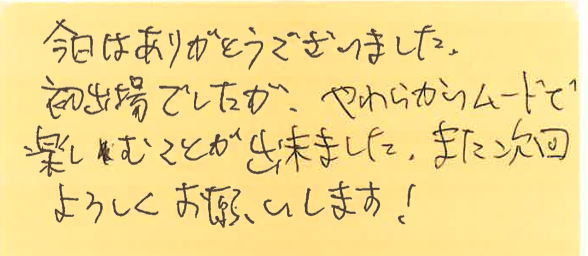 今日はありがとうございました。
初出場でしたが、やわらかいムードで
楽しむことが出来ました。また次回
よろしくお願いします!